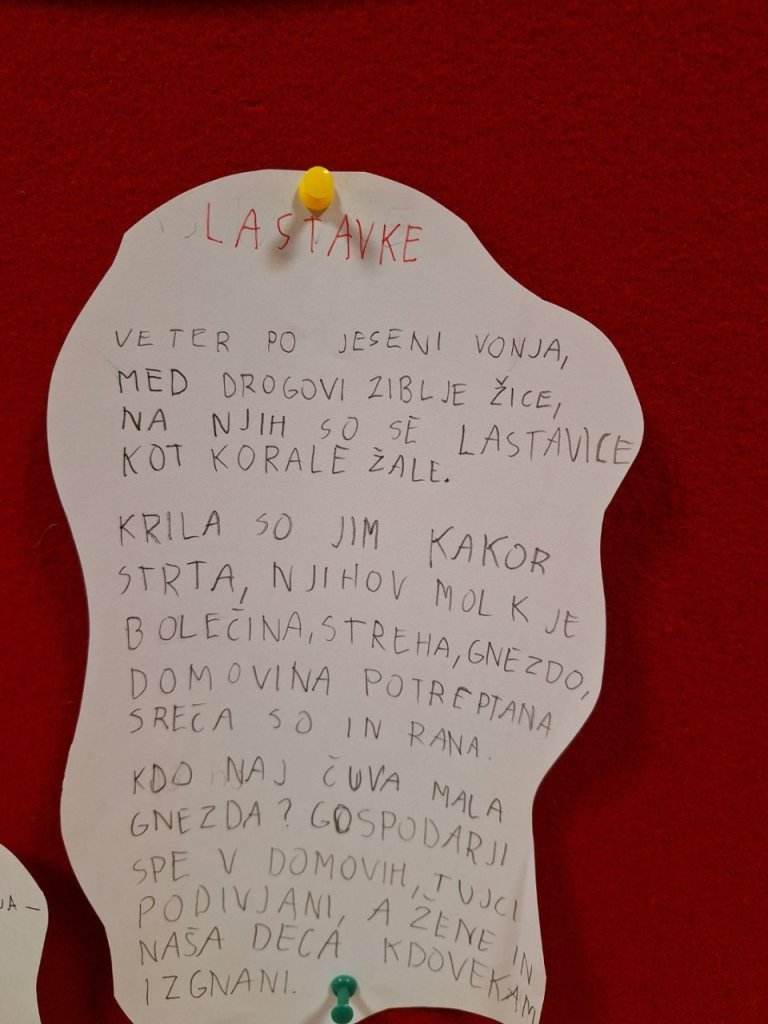 LASTAVKE
VETER PO JESENI VONJA,
MED DROGOVI ZIBLJE ŽICE,
NA NJIH SO SE LASTAVICE
KOT KORALE ŽALE.
KRILA SO JIM KAKOR
STRTA, NJIHOV MOLK JE
BOLEČINA, STREHA, GNEZDO,
DOMOVINA POTREPTANA
SREČA SO IN RANA.
KDO NAJ ČUVA MALA
GNEZDA? GOSPODARJI
SPE V DOMOVIH, TUJCI
PODIVJANI, A ŽENE IN
NAŠA DECA KDOVEKAM
IZGNANI.